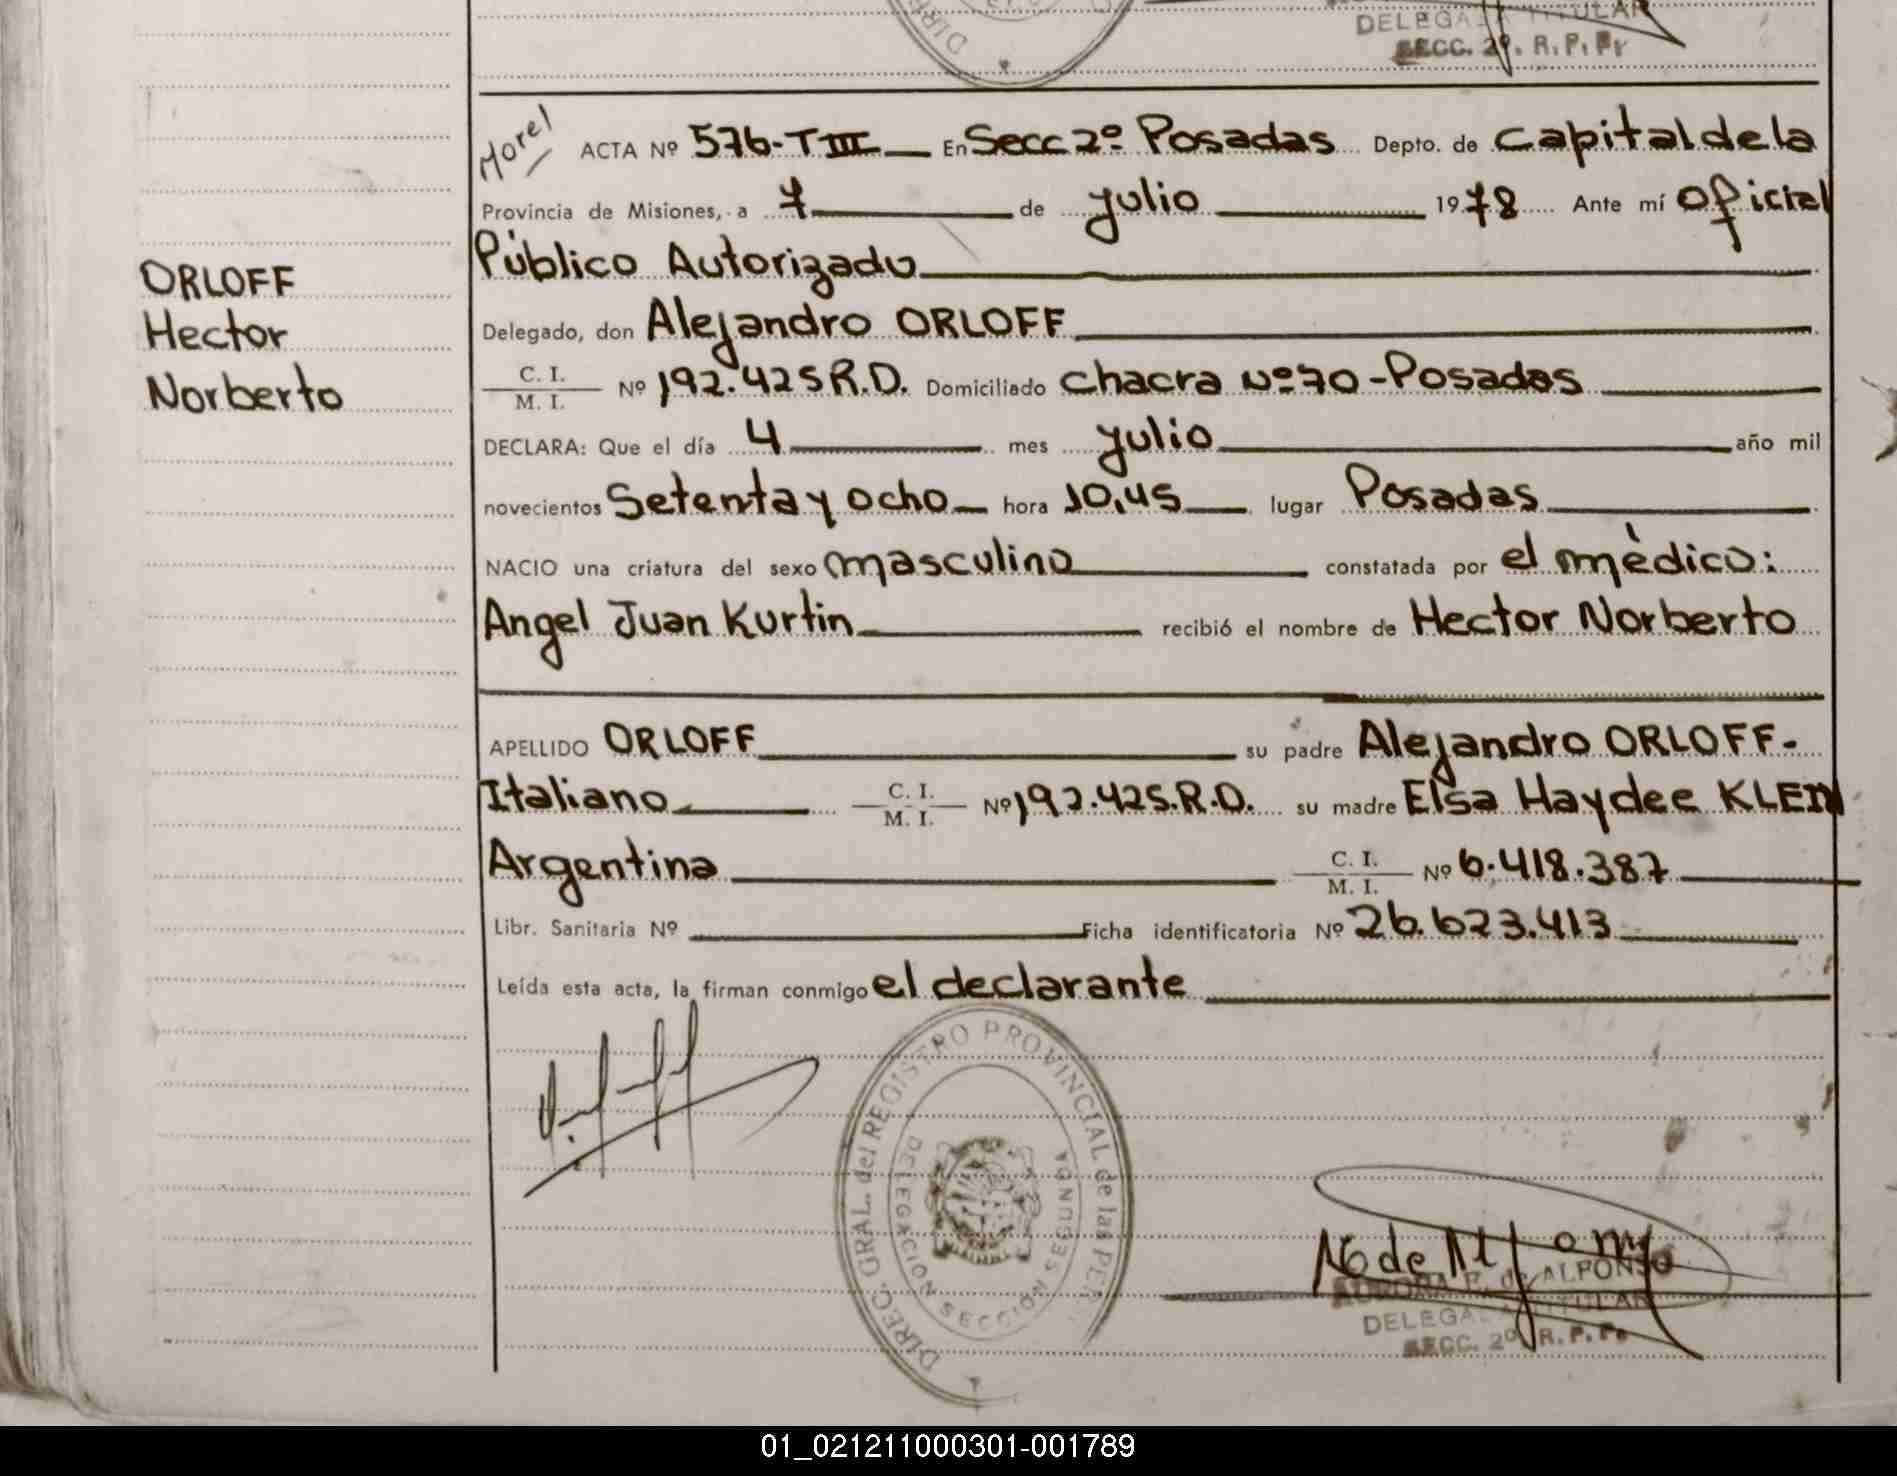 DELEGADA TITULAR
SECC. 2º. R.P.Pr
DIREC
Morel
ACTA Nº 576-TIII En Secc 2º Posadas Depto. de Capital de la
Provincia de Misiones, a 7 de julio 1978 Ante mí Oficial
Público Autorizado
ORLOFF
Hector
Norberto
Delegado, don Alejandro ORLOFF
C. I.
M. I. Nº 192.425 R.D. Domiciliado Chacra Nº 70 - Posadas
DECLARA: Que el día 4 mes julio año mil
novecientos Setenta y ocho hora 10,45 lugar Posadas
NACIO una criatura del sexo masculino constatada por el mèdico:
Angel Juan Kurtin recibió el nombre de Hector Norberto
APELLIDO ORLOFF su padre Alejandro ORLOFF-
Italiano C. I. M. I. Nº 192.425.R.D. su madre Elsa Haydee KLEIN
Argentina C. I. M. I. Nº 6.418.387
Libr. Sanitaria Nº Ficha identificatoria Nº 26.623.413
Leída esta acta, la firman conmigo el declarante
DIREC. GRAL. del REGISTRO PROVINCIAL de las PER
DELEGACION SECCIÓN SEGUNDA
de Alfonso
AURORA de ALFONSO
DELEGADA TITULAR
SECC. 2º R.P.Pe
01_021211000301-001789